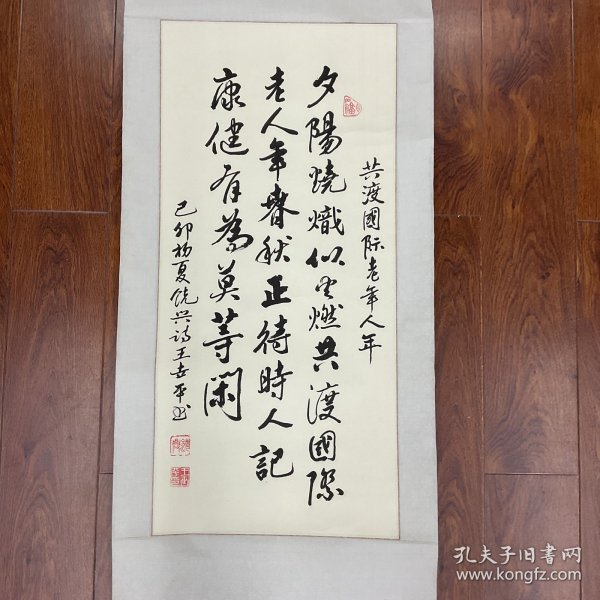 共渡國际老年人年
夕陽燒熾似火燃共渡國際
老人年春秋正待時人記
康健有為莫等閑
己卯初夏饶兴诗王世平书
孔夫子旧书网
www.kongfz.com